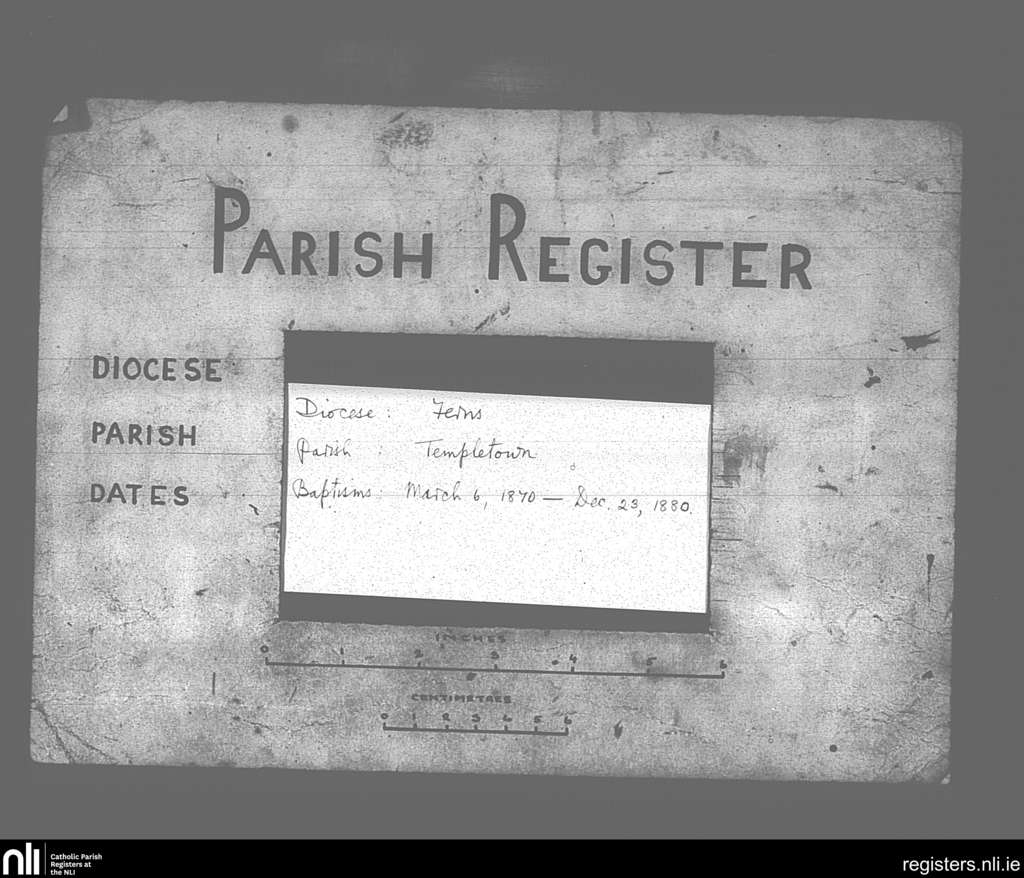 PARISH REGISTER
DIOCESE
PARISH
DATES
Diocese : Ferns
Parish : Templetown
Baptisms: March 6, 1870 — Dec. 23, 1880.
INCHES
0 1 2 3 4 5 6
CENTIMETRES
0 1 2 3 4 5 6
nli
Catholic Parish
Registers at
the NLI
registers.nli.ie